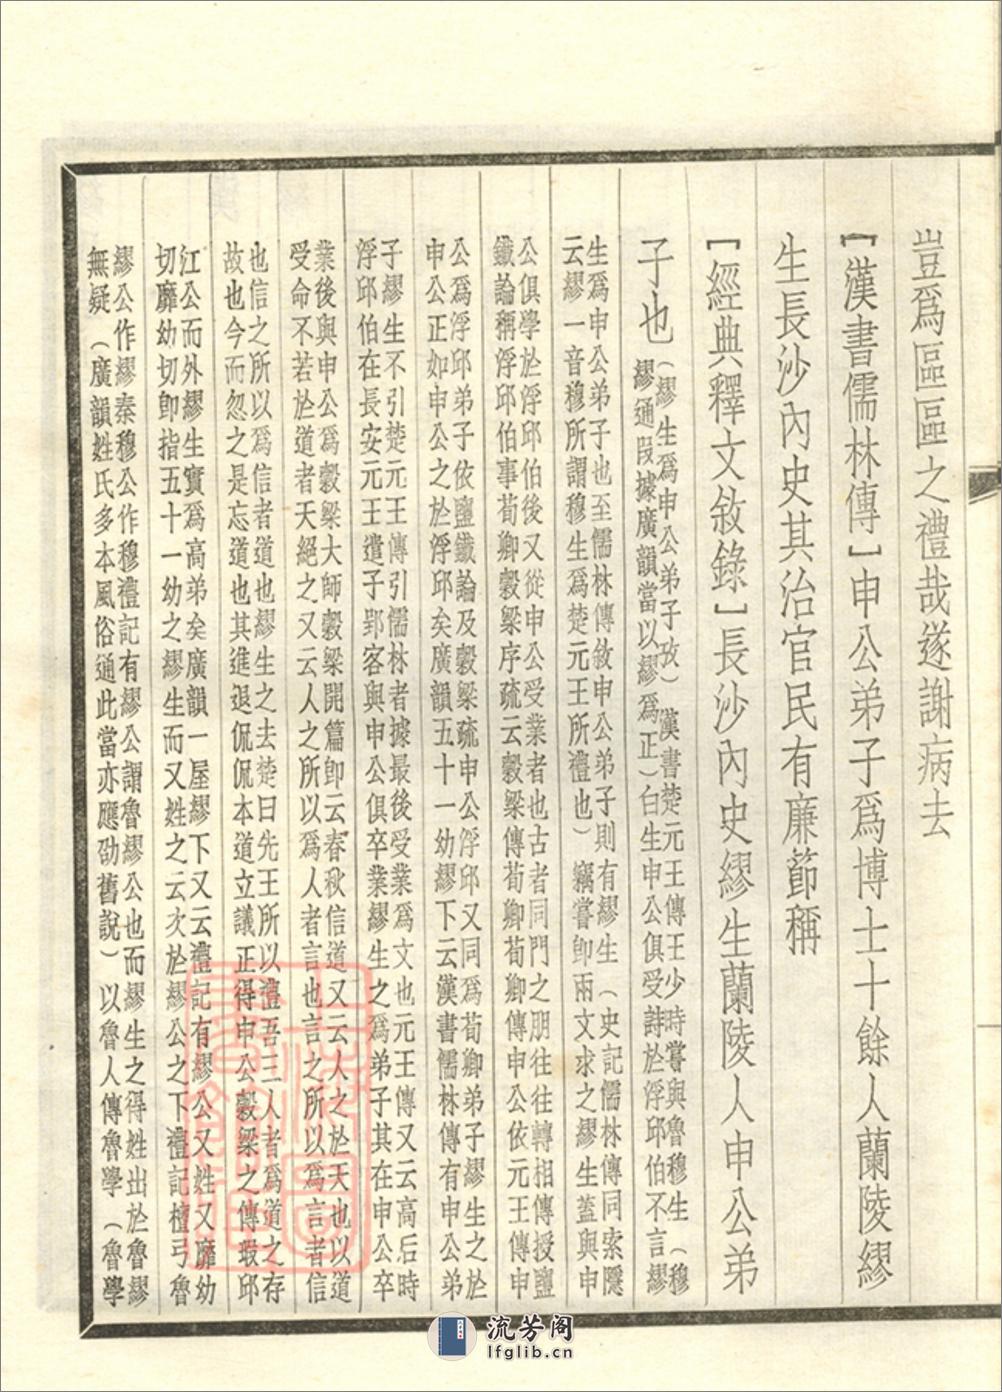 豈爲區區之禮哉遂謝病去
[漢書儒林傳]申公弟子爲博士十餘人蘭陵繆
生長沙內史其治官民有廉節稱
[經典釋文敘錄]長沙內史繆生蘭陵人申公弟
子也
(繆生爲申公弟子攷)漢書楚元王傳王少時嘗與魯穆生(穆
繆通段據廣韻當以繆爲正)白生申公俱受詩於浮邱伯不言繆
生爲申公弟子也至儒林傳敘申公弟子則有繆生(史記儒林傳同索隱
云繆一音穆所謂穆生爲楚元王所禮也)竊嘗卽兩文求之繆生蓋與申
公俱學於浮邱伯後又從申公受業者也古者同門之朋往往轉相傳授鹽
鐵論稱浮邱伯事荀卿穀梁序疏云穀梁傳荀卿荀卿傳申公依元王傳申
公爲浮邱弟子依鹽鐵論及穀梁疏申公浮邱又同爲荀卿弟子繆生之於
申公正如申公之於浮邱矣廣韻五十一幼繆下云漢書儒林傳有申公弟
子繆生不引楚元王傳引儒林者據最後受業爲文也元王傳又云高后時
浮邱伯在長安元王遣子郢客與申公俱卒業繆生之爲弟子其在申公卒
業後與申公爲穀梁大師穀梁開篇卽云春秋信道又云人之於天也以道
受命不若於道者天絕之又云人之所以爲人者言也言之所以爲言者信
也信之所以爲信者道也繆生之去楚曰先王所以禮吾三人者爲道之存
故也今而忽之是忘道也其進退侃侃本道立議正得申公穀梁之傳瑕邱
江公而外繆生實爲高弟矣廣韻一屋繆下又云禮記有繆公又姓又靡幼
切靡幼切卽指五十一幼之繆生而又姓之云次於繆公之下禮記檀弓魯
繆公作繆秦穆公作穆禮記有繆公謂魯繆公也而繆生之得姓出於魯繆
無疑(廣韻姓氏多本風俗通此當亦應劭舊說)以魯人傳魯學(魯學
流芳阁
lfglib.cn